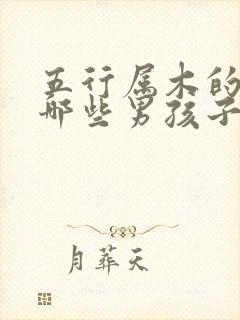 五行属木的
哪些男孩子
月葬天